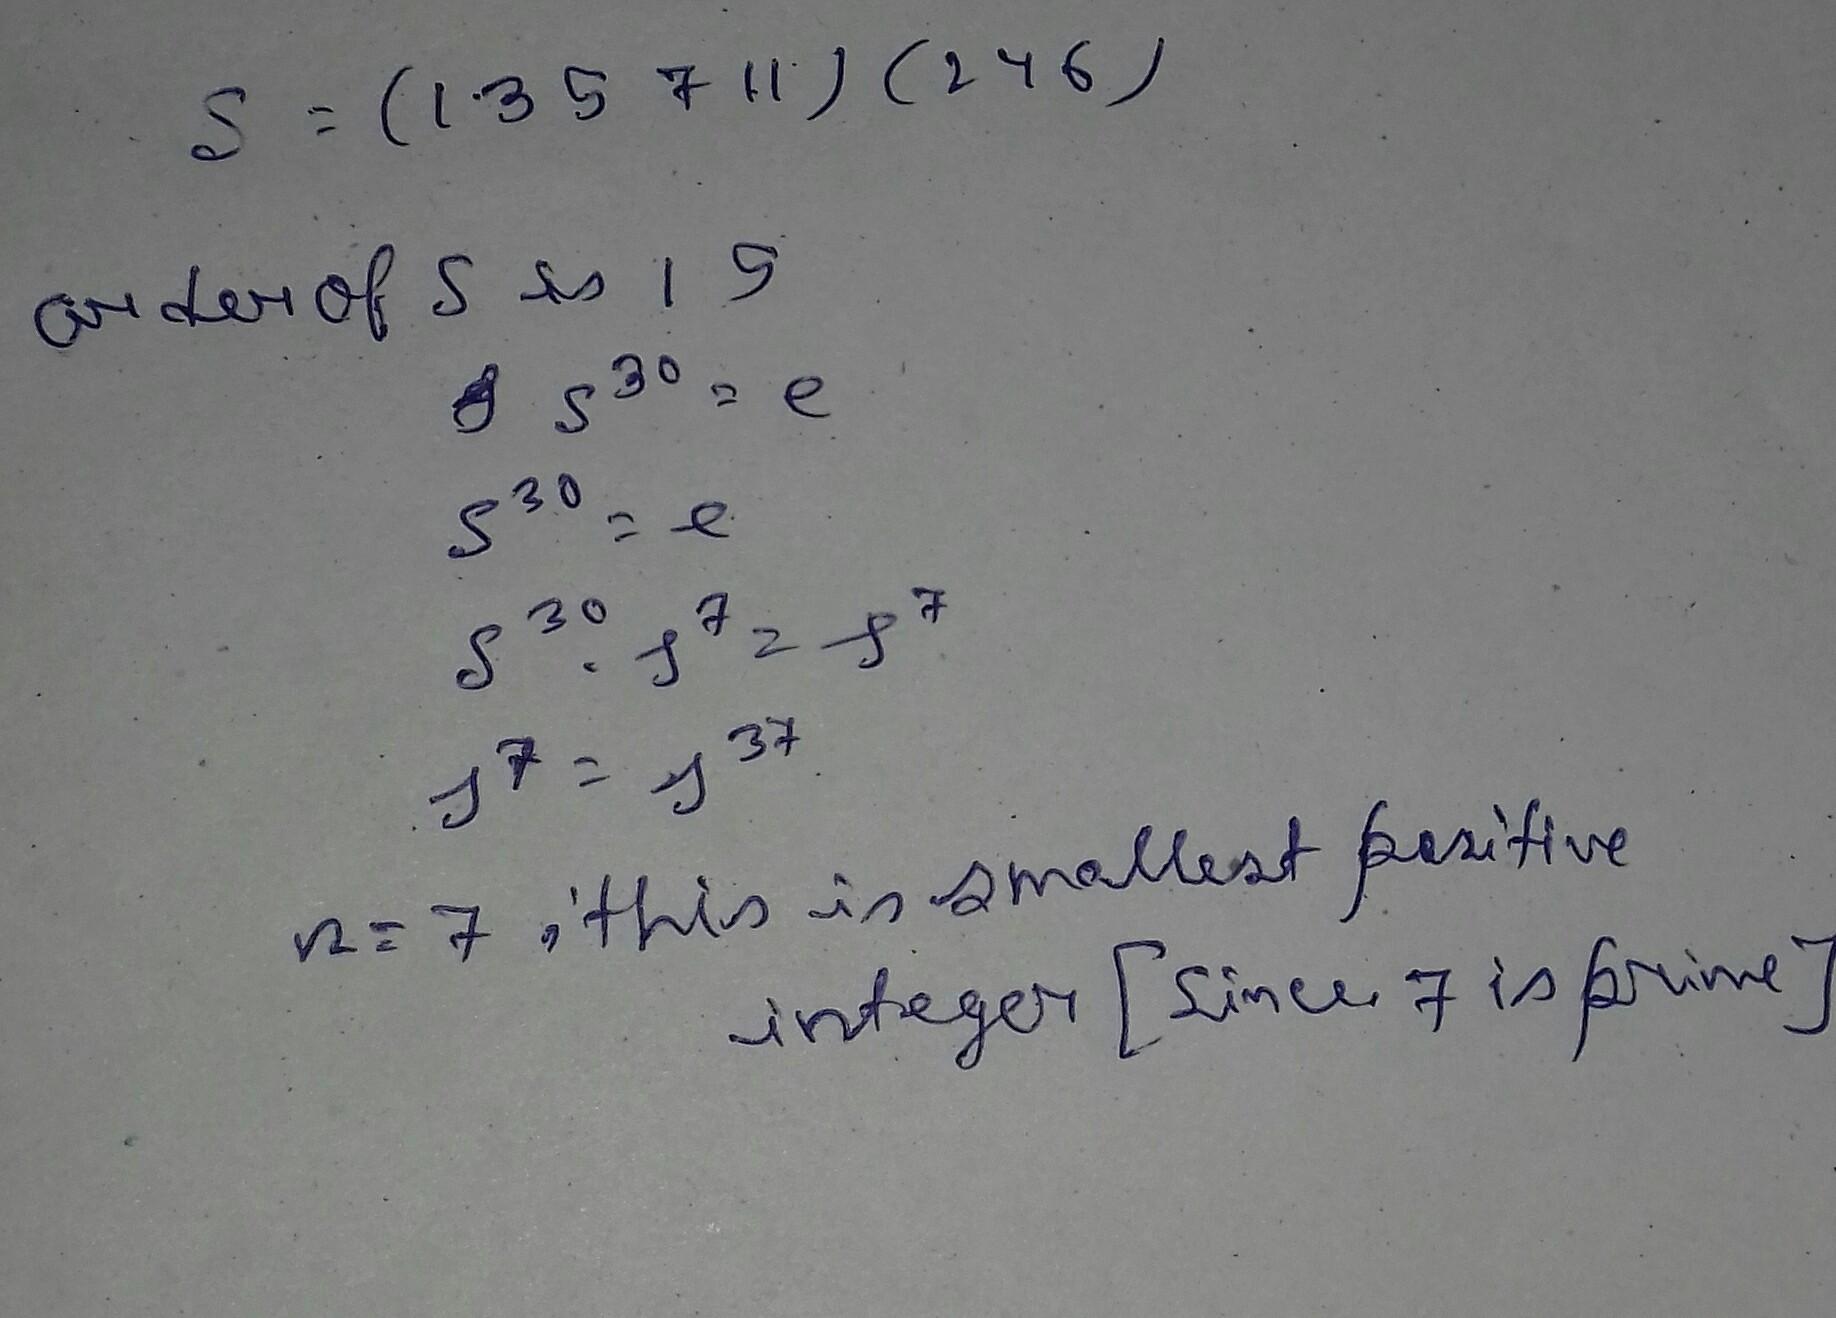 S = (1 3 5 7 11) (2 4 6)
order of S is 15
S³⁰ = e
S³⁰ = e
S³⁰ . S⁷ = S⁷
S⁷ = S³⁷
n = 7, this is smallest positive
integer [Since 7 is prime]